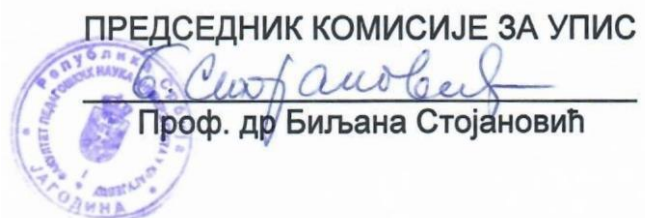 ПРЕДСЕДНИК КОМИСИЈЕ ЗА УПИС
Б. Стојановић
Проф. др Биљана Стојановић
Република Србија
ФАКУЛТЕТ ПЕДАГОШКИХ НАУКА
ЈАГОДИНА